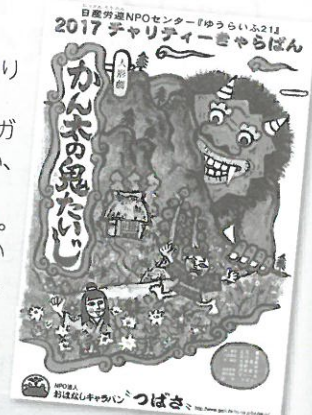 日産労連NPOセンター『ゆうらいふ21』
2017 チャリティーきゃらばん
人形劇
かん太の鬼たいじ
NPO法人
おはなしキャラバン つばさ
り
ガ
、
。